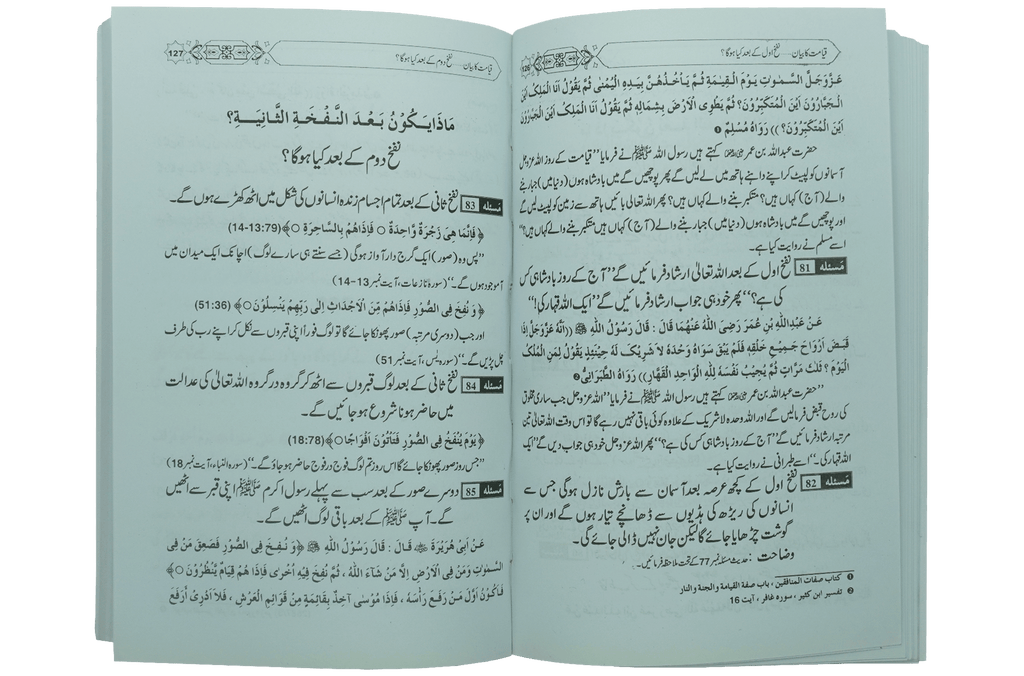 126
قیامت کا بیان ..... نفخ اول کے بعد کیا ہوگا؟
عَزَّوَجَلَّ السَّمٰوٰتِ يَوْمَ الْقِيٰمَةِ ثُمَّ يَأْخُذُهُنَّ بِيَدِهِ الْيُمْنٰى ثُمَّ يَقُوْلُ اَنَا الْمَلِكُ اَيْنَ
الْجَبَّارُوْنَ اَيْنَ الْمُتَكَبِّرُوْنَ؟ ثُمَّ يَطْوِى الْاَرْضَ بِشِمَالِهٖ ثُمَّ يَقُوْلُ اَنَا الْمَلِكُ اَيْنَ الْجَبَّارُوْنَ
اَيْنَ الْمُتَكَبِّرُوْنَ؟ )) رَوَاهُ مُسْلِمٌ ❶
حضرت عبداللہ بن عمر رضی اللہ عنہما کہتے ہیں رسول اللہ ﷺ نے فرمایا ”قیامت کے روز اللہ عزوجل
آسمانوں کو لپیٹ کر اپنے داہنے ہاتھ میں لے لیں گے پھر پوچھیں گے میں بادشاہ ہوں (دنیا میں) جبار بننے
والے (آج) کہاں ہیں؟ متکبر بننے والے کہاں ہیں؟ پھر اللہ تعالیٰ بائیں ہاتھ سے زمین کو لپیٹ لیں گے
اور پوچھیں گے میں بادشاہ ہوں (دنیا میں) جبار بننے والے (آج) کہاں ہیں متکبر بننے والے کہاں ہیں؟“
اسے مسلم نے روایت کیا ہے۔
مَسئله 81 نفخ اول کے بعد اللہ تعالیٰ ارشاد فرمائیں گے ”آج کے روز بادشاہی کس
کی ہے؟“ پھر خود ہی جواب ارشاد فرمائیں گے ”ایک اللہ قہار کی!“
عَنْ عَبْدِاللّٰهِ بْنِ عُمَرَ رَضِىَ اللّٰهُ عَنْهُمَا قَالَ : قَالَ رَسُوْلُ اللّٰهِ ﷺ ((اَنَّهُ عَزَّوَجَلَّ اِذَا
قَبَضَ اَرْوَاحَ جَمِيْعِ خَلْقِهٖ فَلَمْ يَبْقَ سِوَاهُ وَحْدَهُ لَا شَرِيْكَ لَهُ حِيْنَئِذٍ يَقُوْلُ لِمَنِ الْمُلْكُ
الْيَوْمَ ؟ ثَلٰثَ مَرَّاتٍ ثُمَّ يُجِيْبُ نَفْسَهُ لِلّٰهِ الْوَاحِدِ الْقَهَّارِ )) رَوَاهُ الطَّبْرَانِىُّ ❷
حضرت عبداللہ بن عمر رضی اللہ عنہما کہتے ہیں رسول اللہ ﷺ نے فرمایا ”اللہ عزوجل جب ساری مخلوق
کی روح قبض فرما لیں گے اور اللہ وحدہ لا شریک کے علاوہ کوئی باقی نہیں رہے گا تو اس وقت اللہ تعالیٰ تین
مرتبہ ارشاد فرمائیں گے ”آج کے روز بادشاہی کس کی ہے؟“ پھر اللہ عزوجل خود ہی جواب دیں گے ”ایک
اللہ قہار کی۔“ اسے طبرانی نے روایت کیا ہے۔
مَسئله 82 نفخ اول کے کچھ عرصہ بعد آسمان سے بارش نازل ہوگی جس سے
انسانوں کی ریڑھ کی ہڈیوں سے ڈھانچے تیار ہوں گے اور ان پر
گوشت چڑھایا جائے گا لیکن جان نہیں ڈالی جائے گی۔
وضاحت : حدیث مسئلہ نمبر 77 کے تحت ملاحظہ فرمائیں۔
❶ كتاب صفات المنافقين ، باب صفة القيامة والجنة والنار
❷ تفسير ابن كثير ، سوره غافر ، آيت 16
قیامت کا بیان ..... نفخ دوم کے بعد کیا ہوگا؟
127
مَاذَا يَكُوْنُ بَعْدَ النَّفْخَةِ الثَّانِيَةِ؟
نفخ دوم کے بعد کیا ہوگا؟
مَسئله 83 نفخ ثانی کے بعد تمام اجسام زندہ انسانوں کی شکل میں اٹھ کھڑے ہوں گے۔
﴿ فَاِنَّمَا هِىَ زَجْرَةٌ وَّاحِدَةٌ ○ فَاِذَا هُمْ بِالسَّاهِرَةِ ○﴾(14-13:79)
”پس وہ (صور) ایک گرج دار آواز ہوگی (جسے سنتے ہی سارے لوگ) اچانک ایک میدان میں
آ موجود ہوں گے۔“ (سورۂ نازعات، آیت نمبر 13-14)
﴿ وَ نُفِخَ فِى الصُّوْرِ فَاِذَا هُمْ مِّنَ الْاَجْدَاثِ اِلٰى رَبِّهِمْ يَنْسِلُوْنَ○﴾(51:36)
اور جب (دوسری مرتبہ) صور پھونکا جائے گا تو لوگ فوراً اپنی قبروں سے نکل کر اپنے رب کی طرف
چل پڑیں گے۔“ (سورہ یٰس، آیت نمبر 51)
مَسئله 84 نفخ ثانی کے بعد لوگ قبروں سے اٹھ کر گروہ در گروہ اللہ تعالیٰ کی عدالت
میں حاضر ہونا شروع ہو جائیں گے۔
﴿ يَوْمَ يُنْفَخُ فِى الصُّوْرِ فَتَاْتُوْنَ اَفْوَاجًا○﴾(18:78)
”جس روز صور پھونکا جائے گا اس روز تم لوگ فوج در فوج حاضر ہو جاؤ گے۔“ (سورہ النباء، آیت نمبر 18)
مَسئله 85 دوسرے صور کے بعد سب سے پہلے رسول اکرم ﷺ اپنی قبر سے اٹھیں
گے۔ آپ ﷺ کے بعد باقی لوگ اٹھیں گے۔
عَنْ اَبِىْ هُرَيْرَةَ ؓ قَالَ : قَالَ رَسُوْلُ اللّٰهِ ﷺ ﴿وَ نُفِخَ فِى الصُّوْرِ فَصَعِقَ مَنْ فِى
السَّمٰوٰتِ وَمَنْ فِى الْاَرْضِ اِلَّا مَنْ شَآءَ اللّٰهُ ، ثُمَّ نُفِخَ فِيْهِ اُخْرٰى فَاِذَا هُمْ قِيَامٌ يَّنْظُرُوْنَ○﴾
فَاَكُوْنُ اَوَّلَ مَنْ رَفَعَ رَأْسَهُ ، فَاِذَا مُوْسٰى آخِذٌ بِقَائِمَةٍ مِنْ قَوَائِمِ الْعَرْشِ ، فَلَا اَدْرِىْ اَرَفَعَ